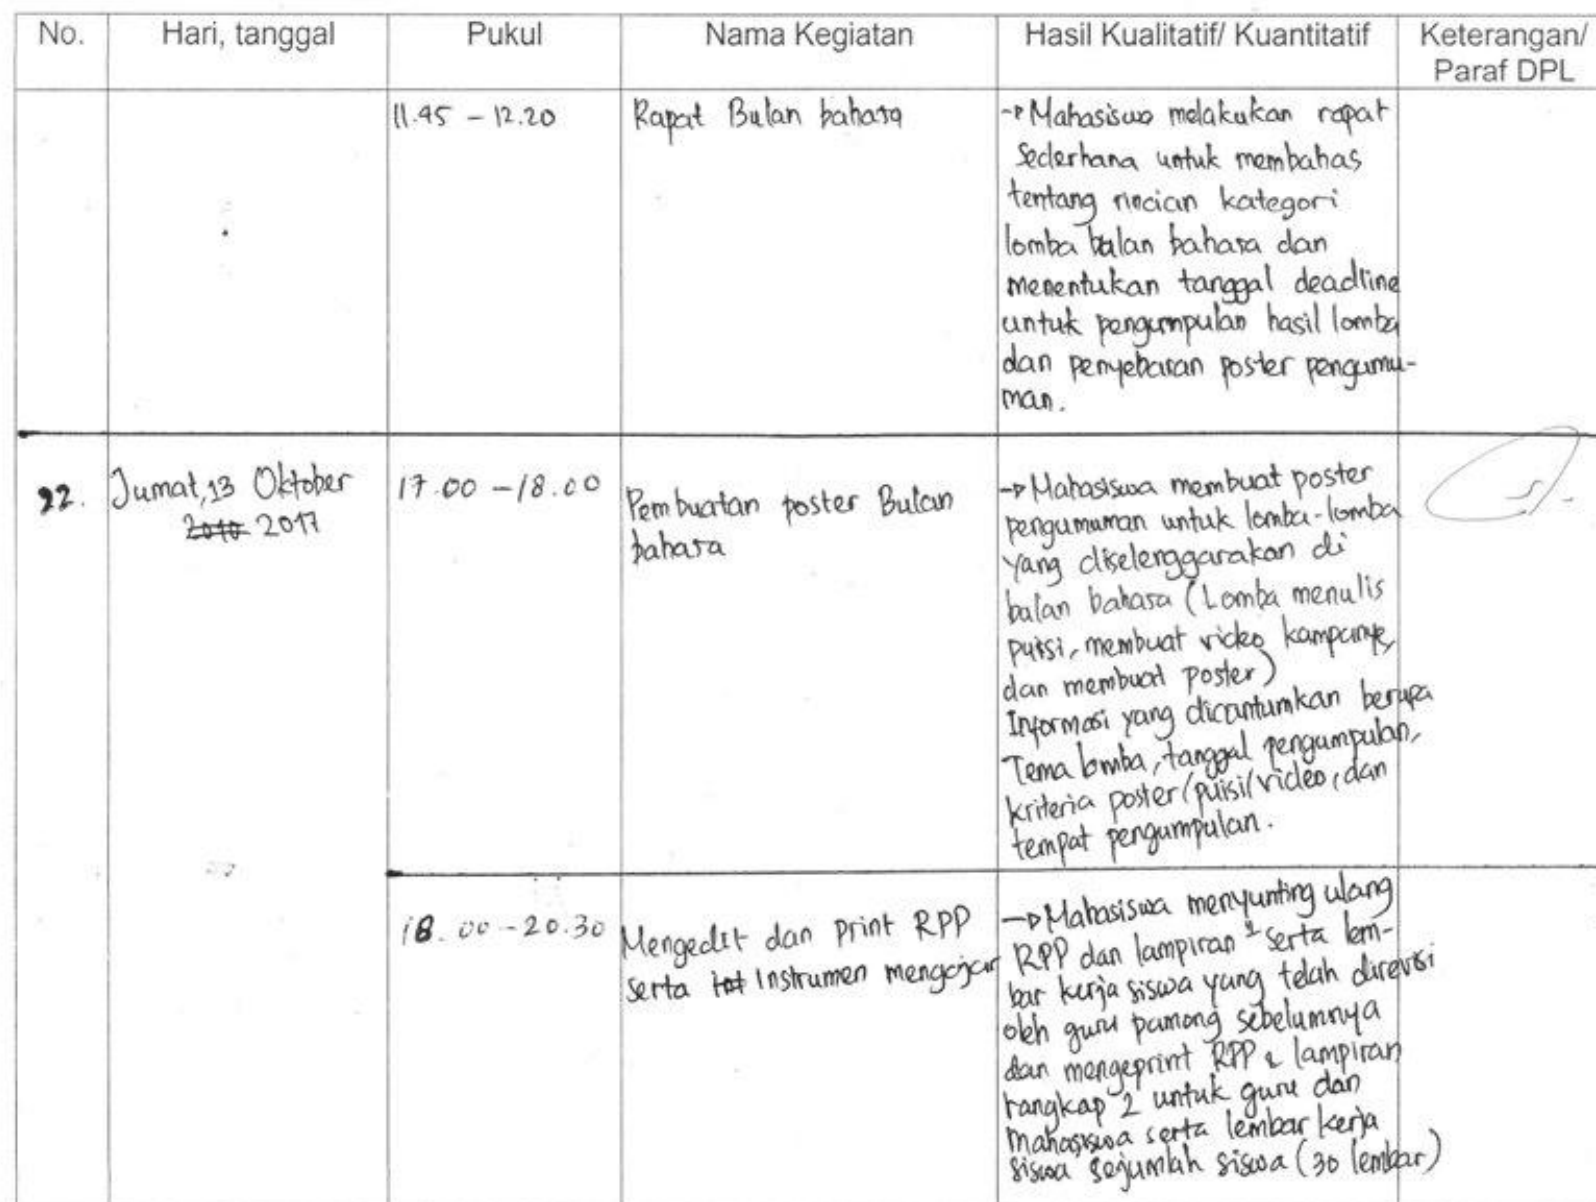 No. Hari, tanggal Pukul Nama Kegiatan Hasil Kualitatif/ Kuantitatif Keterangan/
Paraf DPL
11.45 - 12.20 Rapat Bulan bahasa → Mahasiswa melakukan rapat
sederhana untuk membahas
tentang rincian kategori
lomba bulan bahasa dan
menentukan tanggal deadline
untuk pengumpulan hasil lomba
dan penyebaran poster pengumu-
man.
22. Jumat, 13 Oktober 17.00 - 18.00 Pembuatan poster Bulan → Mahasiswa membuat poster
2017 bahasa pengumuman untuk lomba-lomba
yang diselenggarakan di
bulan bahasa (Lomba menulis
puisi, membuat video kampanye,
dan membuat poster)
Informasi yang dicantumkan berupa
Tema lomba, tanggal pengumpulan,
kriteria poster/puisi/video, dan
tempat pengumpulan.
18.00 - 20.30 Mengedit dan print RPP → Mahasiswa menyunting ulang
serta Instrumen mengajar RPP dan lampiran² serta lem-
bar kerja siswa yang telah direvisi
oleh guru pamong sebelumnya
dan mengeprint RPP & lampiran
rangkap 2 untuk guru dan
mahasiswa serta lembar kerja
siswa sejumlah siswa (30 lembar)